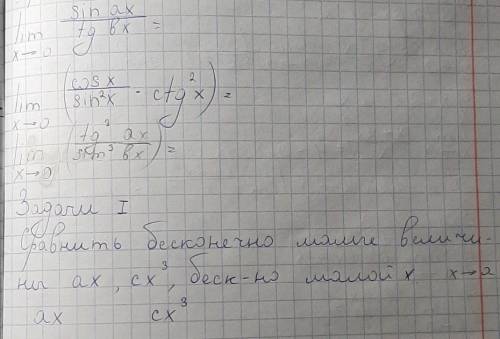 lim x→0 sin ax / tg bx =
lim x→0 (cos x / sin²x - ctg²x) =
lim x→0 (tg³ ax / sin³ bx) =
Задачи I
Сравнить бесконечно малые величи-
ны ax, cx³, беск-но малой x x→0
ax cx³